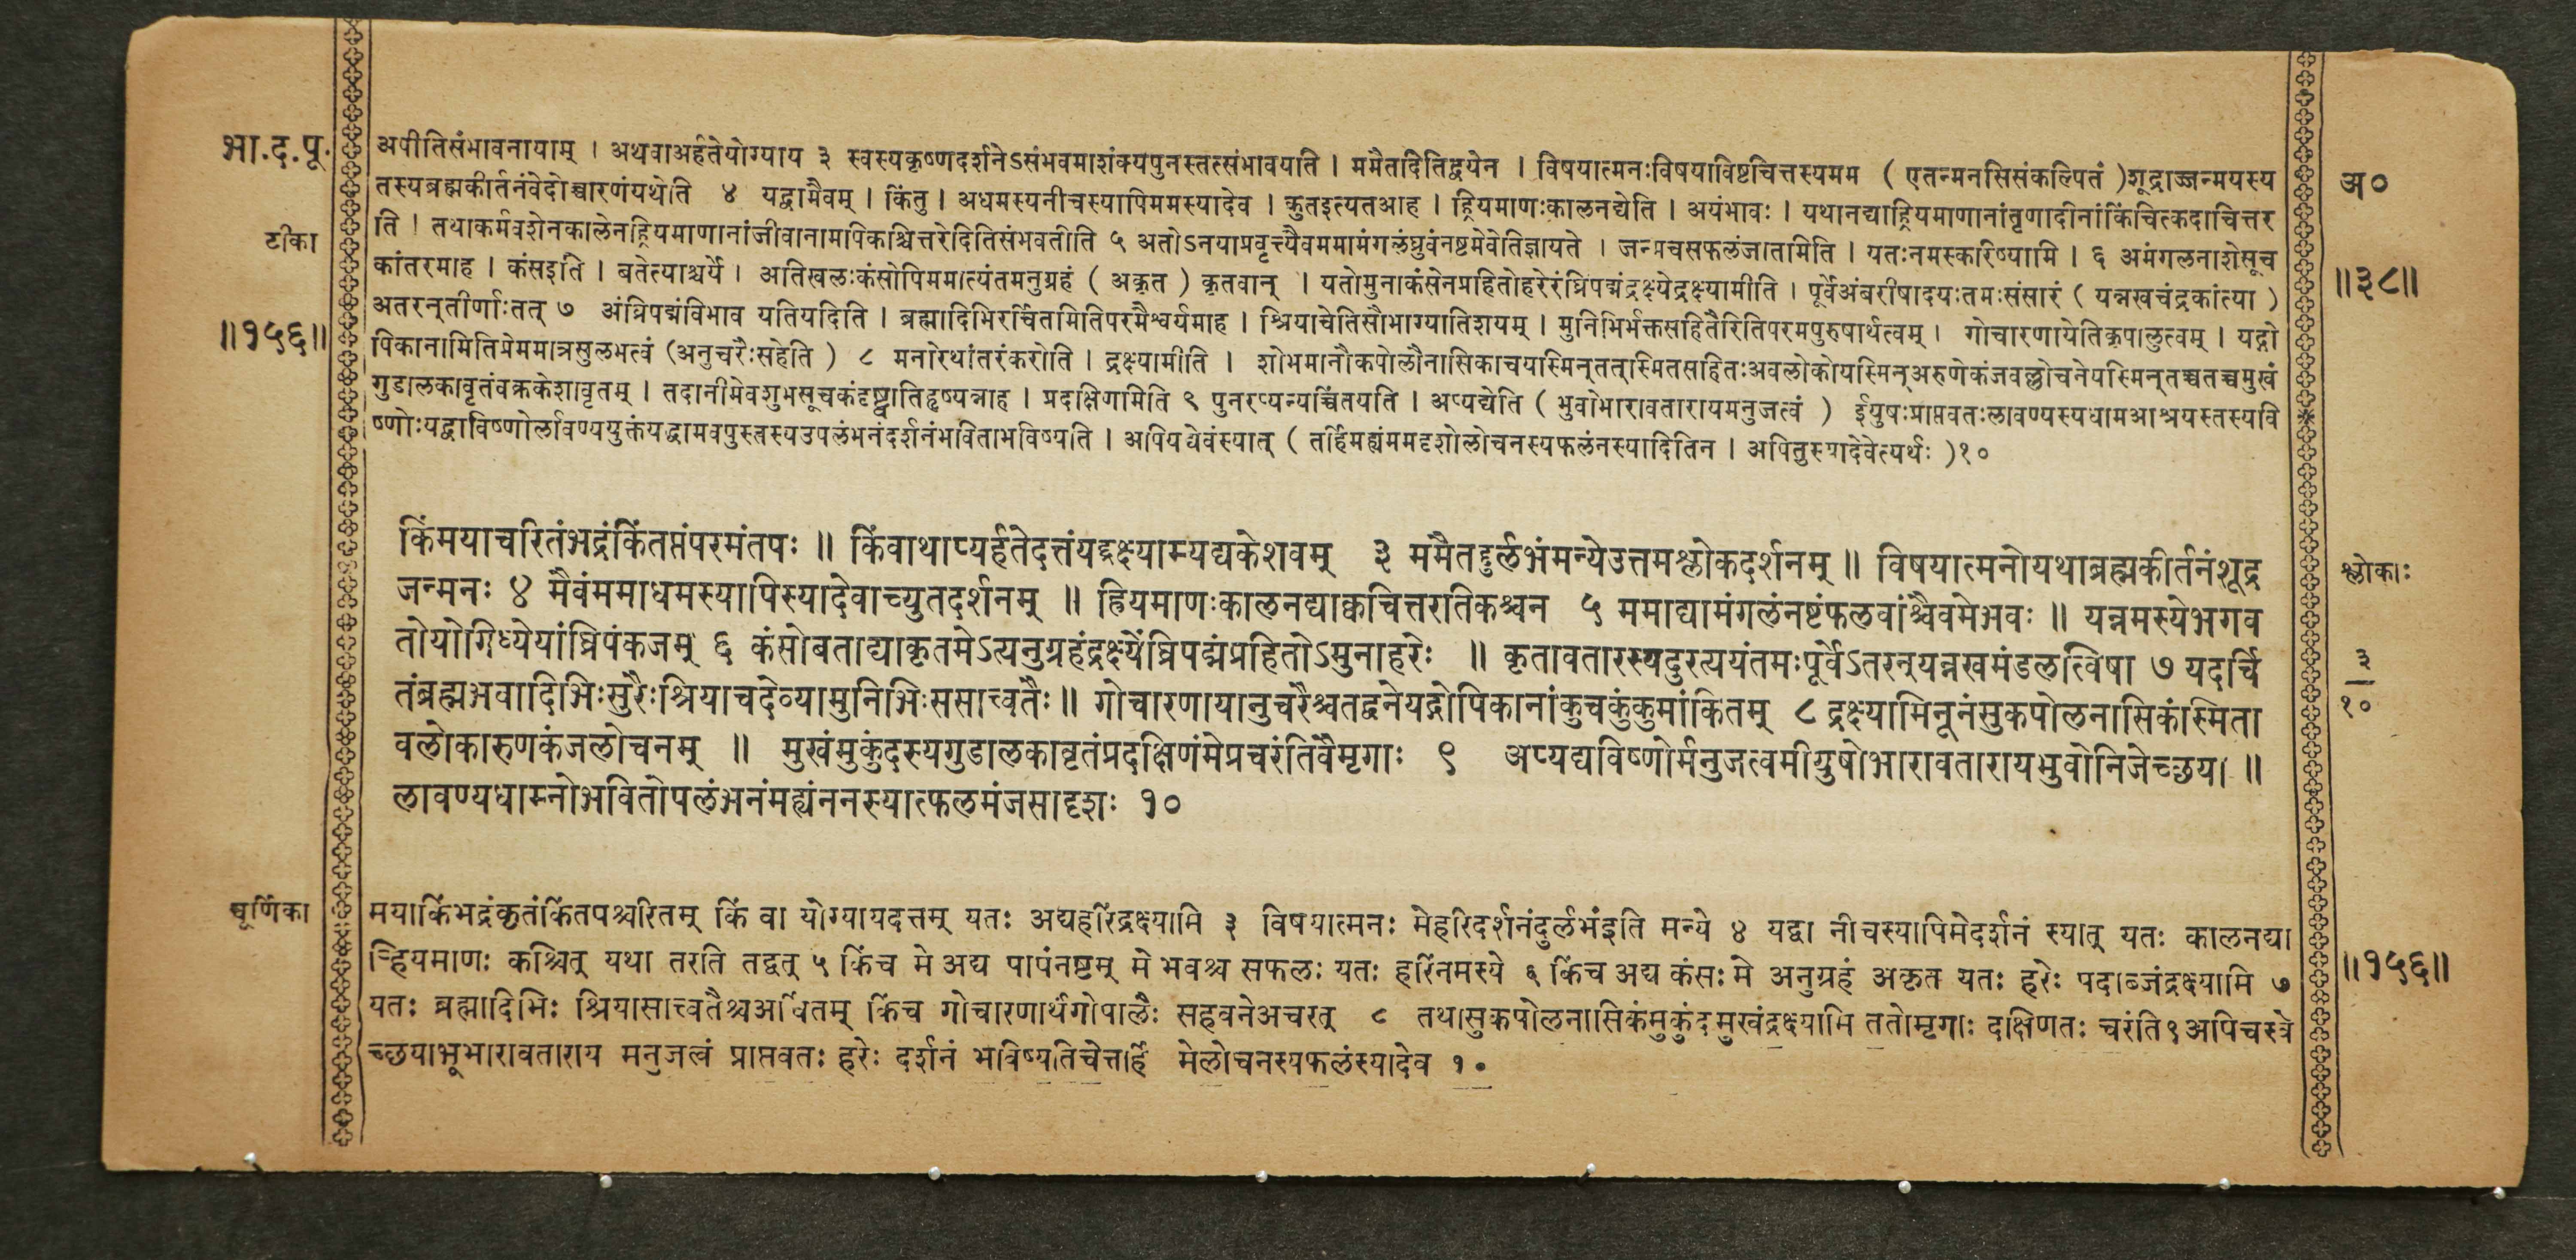 भा.द.पू.
टीका
॥१५६॥
अपीतिसंभावनायाम् । अथवाअर्हतेयोग्याय ३ स्वस्यकृष्णदर्शनेऽसंभवमाशंक्यपुनस्तत्संभावयति । ममैतदितिद्वयेन । विषयात्मनःविषयाविष्टचित्तस्यमम ( एतन्मनसिसंकल्पितं )शूद्राज्जन्मयस्य
तस्यब्रह्मकीर्तनंवेदोच्चारणंयथेति ४ यद्वामैवम् । किंतु । अधमस्यनीचस्यापिममस्यादेव । कुतइत्यतआह । ह्रियमाणःकालनद्येति । अयंभावः । यथानद्याह्रियमाणानांतृणादीनांकिंचित्कदाचित्तर
ति । तथाकर्मवशेनकालेनह्रियमाणानांजीवानामपिकश्चित्तरेदितिसंभवतीति ५ अतोऽनयाप्रवृत्त्यैवममामंगलंध्रुवंनष्टमेवेतिज्ञायते । जन्मचसफलंजातामिति । यतःनमस्करिष्यामि । ६ अमंगलनाशेसूच
कांतरमाह । कंसइति । बतेत्याश्चर्ये । अतिखलःकंसोपिममात्यंतमनुग्रहं ( अकृत ) कृतवान् । यतोमुनाकंसेनप्रहितोहरेरंघ्रिपद्मंद्रक्ष्येद्रक्ष्यामीति । पूर्वेअंबरीषादयःतमःसंसारं ( यन्नखचंद्रकांत्या )
अतरन्तीर्णाःतत् ७ अंघ्रिपद्मंविभाव यतियदिति । ब्रह्मादिभिरर्चितमितिपरमैश्वर्यमाह । श्रियाचेतिसौभाग्यातिशयम् । मुनिभिर्भक्तसहितैरितिपरमपुरुषार्थत्वम् । गोचारणायेतिकृपालुत्वम् । यद्गो
पिकानामितिप्रेममात्रसुलभत्वं (अनुचरैःसहेति ) ८ मनोरथांतरंकरोति । द्रक्ष्यामीति । शोभमानौकपोलौनासिकाचयस्मिन्तत्स्मितसहितःअवलोकोयस्मिन्अरुणेकंजवल्लोचनेयस्मिन्तच्चतच्चमुखं
गुडालकावृतंवक्रकेशावृतम् । तदानीमेवशुभसूचकंदृष्ट्वातिहृष्यन्नाह । प्रदक्षिणमिति ९ पुनरप्यन्यच्चिंतयति । अप्यद्येति ( भुवोभारावतारायमनुजत्वं ) ईयुषःप्राप्तवतःलावण्यस्यधामआश्रयस्तस्यवि
ष्णोःयद्वाविष्णोर्लावण्ययुक्तंयद्धामवपुस्तस्यउपलंभनंदर्शनंभविताभविष्यति । अपियद्येवंस्यात् ( तर्हिमह्यंममदृशोलोचनस्यफलंनस्यादितिन । अपितुस्यादेवेत्यर्थः )१०
अ०
॥३८॥
किंमयाचरितंभद्रंकिंतप्तंपरमंतपः ॥ किंवाथाप्यर्हतेदत्तंयद्द्रक्ष्याम्यद्यकेशवम् ३ ममैतद्दुर्लभंमन्येउत्तमश्लोकदर्शनम् ॥ विषयात्मनोयथाब्रह्मकीर्तनंशूद्र
जन्मनः ४ मैवंममाधमस्यापिस्यादेवाच्युतदर्शनम् ॥ ह्रियमाणःकालनद्याक्वचित्तरतिकश्चन ५ ममाद्यामंगलंनष्टंफलवांश्चैवमेभवः ॥ यन्नमस्येभगव
तोयोगिध्येयांघ्रिपंकजम् ६ कंसोबताद्याकृतमेऽत्यनुग्रहंद्रक्ष्येंघ्रिपद्मंप्रहितोऽमुनाहरेः ॥ कृतावतारस्यदुरत्ययंतमःपूर्वेऽतरन्यन्नखमंडलत्विषा ७ यदर्चि
तंब्रह्मभवादिभिःसुरैःश्रियाचदेव्यामुनिभिःससात्त्वतैः ॥ गोचारणायानुचरैश्चतद्वनेयद्गोपिकानांकुचकुंकुमांकितम् ८ द्रक्ष्यामिनूनंसुकपोलनासिकंास्मिता
वलोकारुणकंजलोचनम् ॥ मुखंमुकुंदस्यगुडालकावृतंप्रदक्षिणंमेप्रचरंतिवैमृगाः ९ अप्यद्यविष्णोर्मनुजत्वमीयुषोभारावतारायभुवोनिजेच्छया ॥
लावण्यधाम्नोभवितोपलंभनंमह्यंननस्यात्फलमंजसादृशः १०
श्लोकाः
३
१०
चूर्णिका
मयाकिंभद्रंकृतंकिंतपश्चरितम् किं वा योग्यायदत्तम् यतः अद्यहरिंद्रक्ष्यामि ३ विषयात्मनः मेहरिदर्शनंदुर्लभंइति मन्ये ४ यद्वा नीचस्यापिमेदर्शनं स्यात् यतः कालनद्या
ह्रियमाणः कश्चित् यथा तरति तद्वत् ५ किंच मे अद्य पापंनष्टम् मे भवश्च सफलः यतः हरिंनमस्ये ६ किंच अद्य कंसः मे अनुग्रहं अकृत यतः हरेः पदाब्जंद्रक्ष्यामि ७
यतः ब्रह्मादिभिः श्रियासात्त्वतैश्चअर्चितम् किंच गोचारणार्थंगोपालैः सहवनेअचरत् ८ तथासुकपोलनासिकंमुकुंदमुखंद्रक्ष्यामि ततोमृगाः दक्षिणतः चरंति९अपिचस्वे
च्छयाभूभारावताराय मनुजत्वं प्राप्तवतः हरेः दर्शनं भविष्यतिचेत्तर्हि मेलोचनस्यफलंस्यादेव १०
॥१५६॥